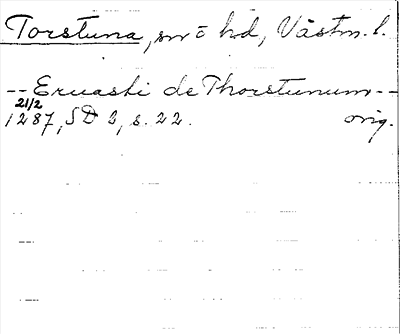 Torstuna, sn = hd, Västm. l.
-- Eruasti de Thorstunum --
21/2
1287, SD 2, s. 22. orig.